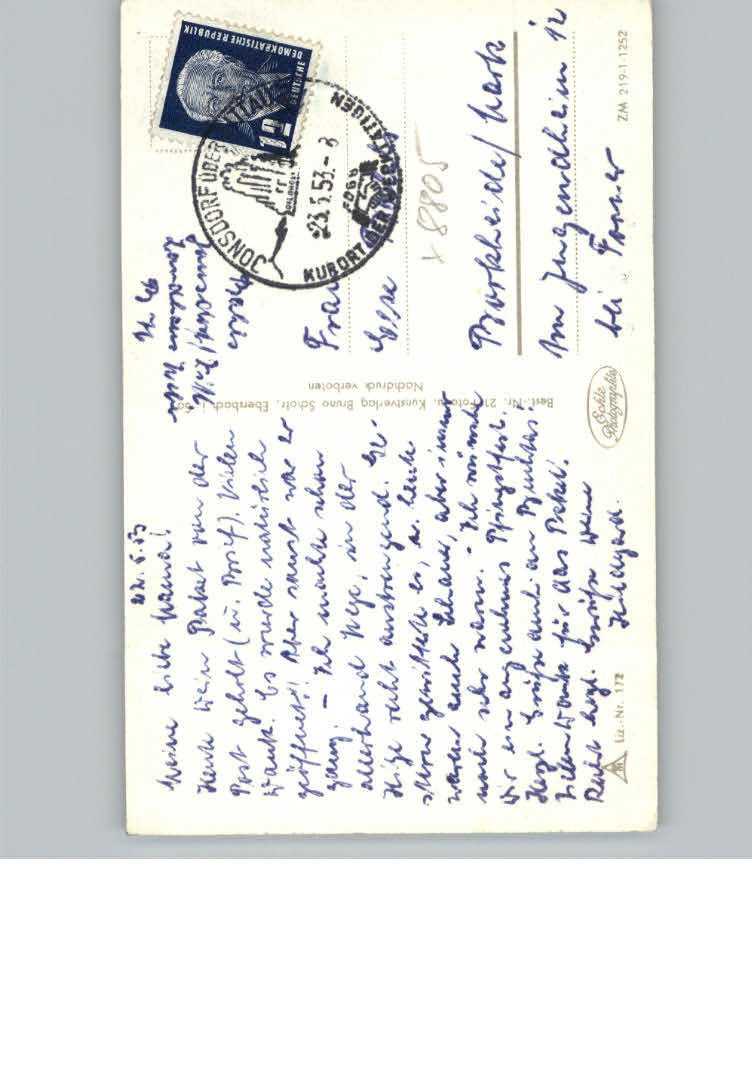 22.5.53
Meine liebe Mama!
Heute Dein Paket von der
Post geholt (u. Brief). Vielen
Dank. Es wurde natürlich
geöffnet!! Aber sonst war er
ganz. – Ich machte schon
allerhand Wege, in der
Hitze recht anstrengend. Ge-
stern gewitterte es, u. heute
waren auch Schauer, aber immer
noch sehr warm. – Ich wünsche
Dir ein angenehmes Pfingstfest.
Herzl. Grüße auch an
Vielen Dank für das Paket.
Recht herzl. Grüße Deine
Hildegard.
Liz.-Nr. 172
Best.-Nr. 21 Foto u. Kunstverlag Bruno Scholz, Ebersbach i. Sa.
Nachdruck verboten
Echte
Photographie
DEUTSCHE
DEMOKRATISCHE REPUBLIK
12
JONSDORF ÜBER ZITTAU
23.5.53.-8
KURORT DER WERKTÄTIGEN
Frau
Else
x 8805
Borkheide/Mark
Am Jugendheim 12
bei
ZM 219-1-1252